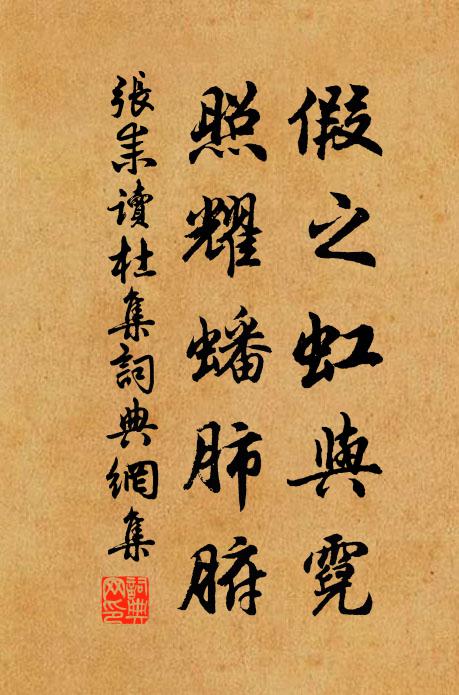 假之虹與霓
照耀蟠肺腑
張耒讀杜集詞典網集
詞典
网印